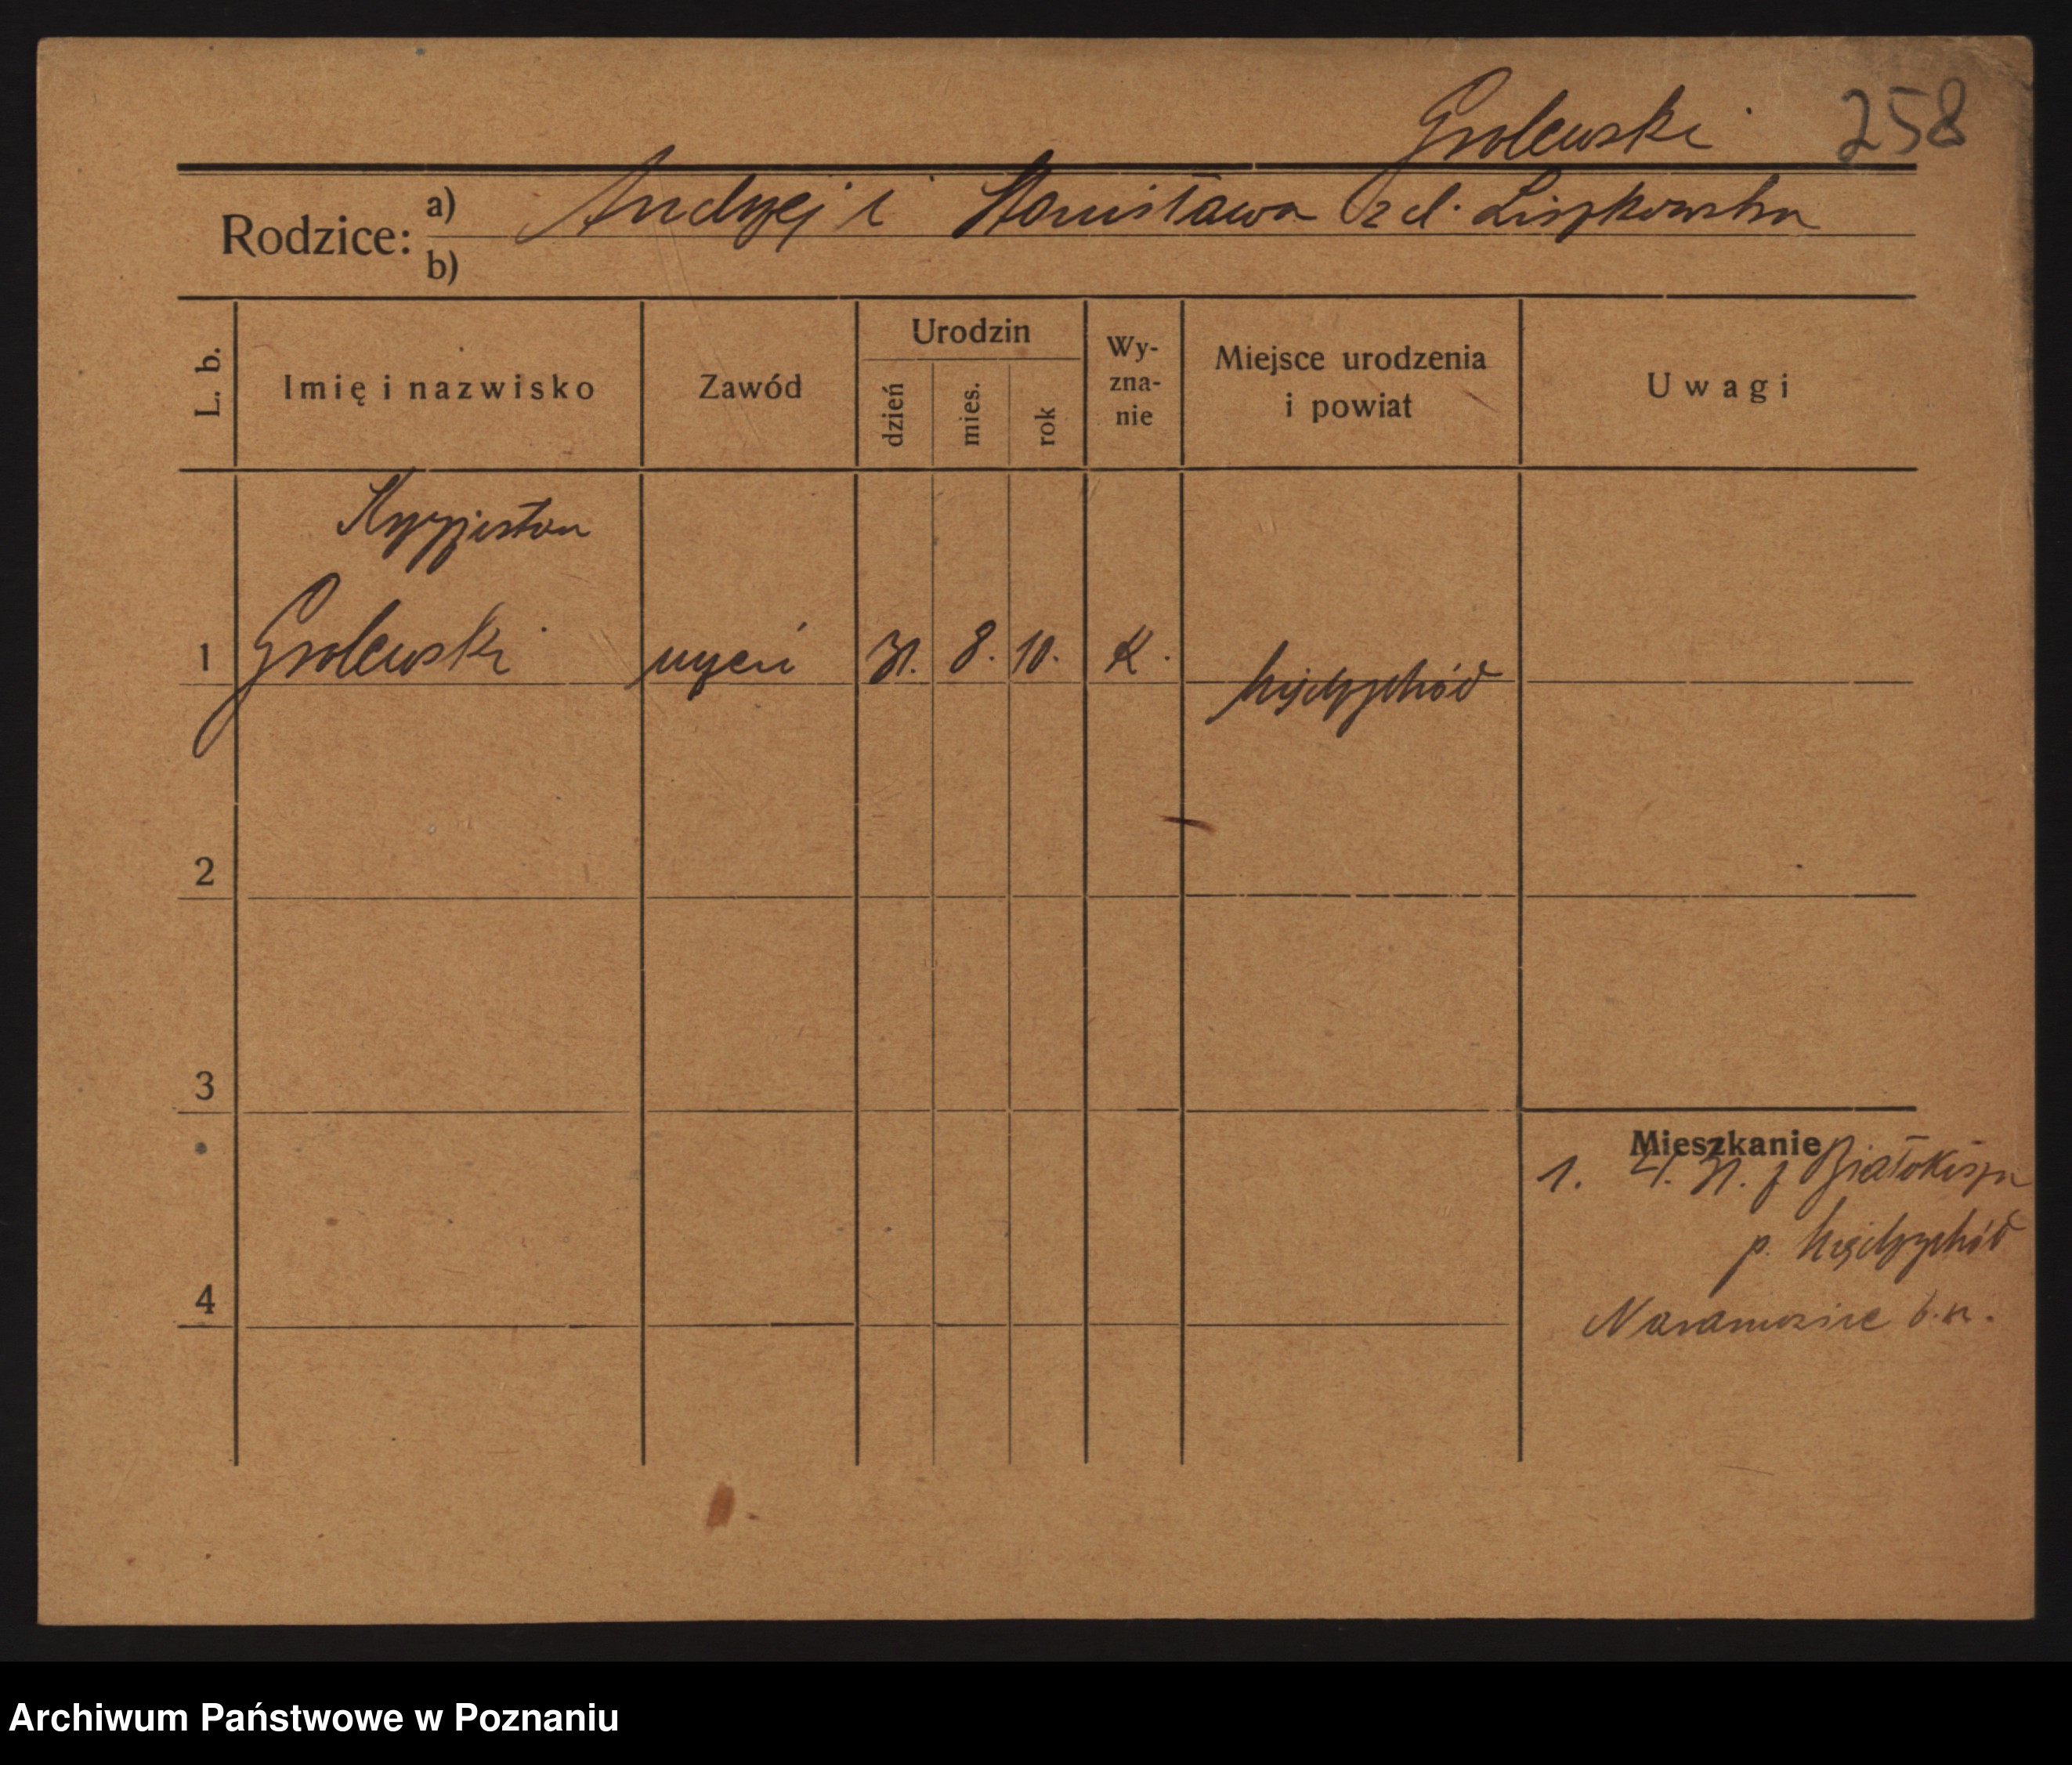 Grolewski 258
Rodzice: a) Andrzej i Stanisława z d. Liszkowska
b)
L. b. Imię i nazwisko Zawód Urodzin dzień mies. rok Wy-zna-nie Miejsce urodzenia i powiat Uwagi
1 Grolewski uczeń 31. 8. 10. K. Międzychód
2
3
Mieszkanie
1. 31. z
p. Międzychód
4
Naramowice
Archiwum Państwowe w Poznaniu